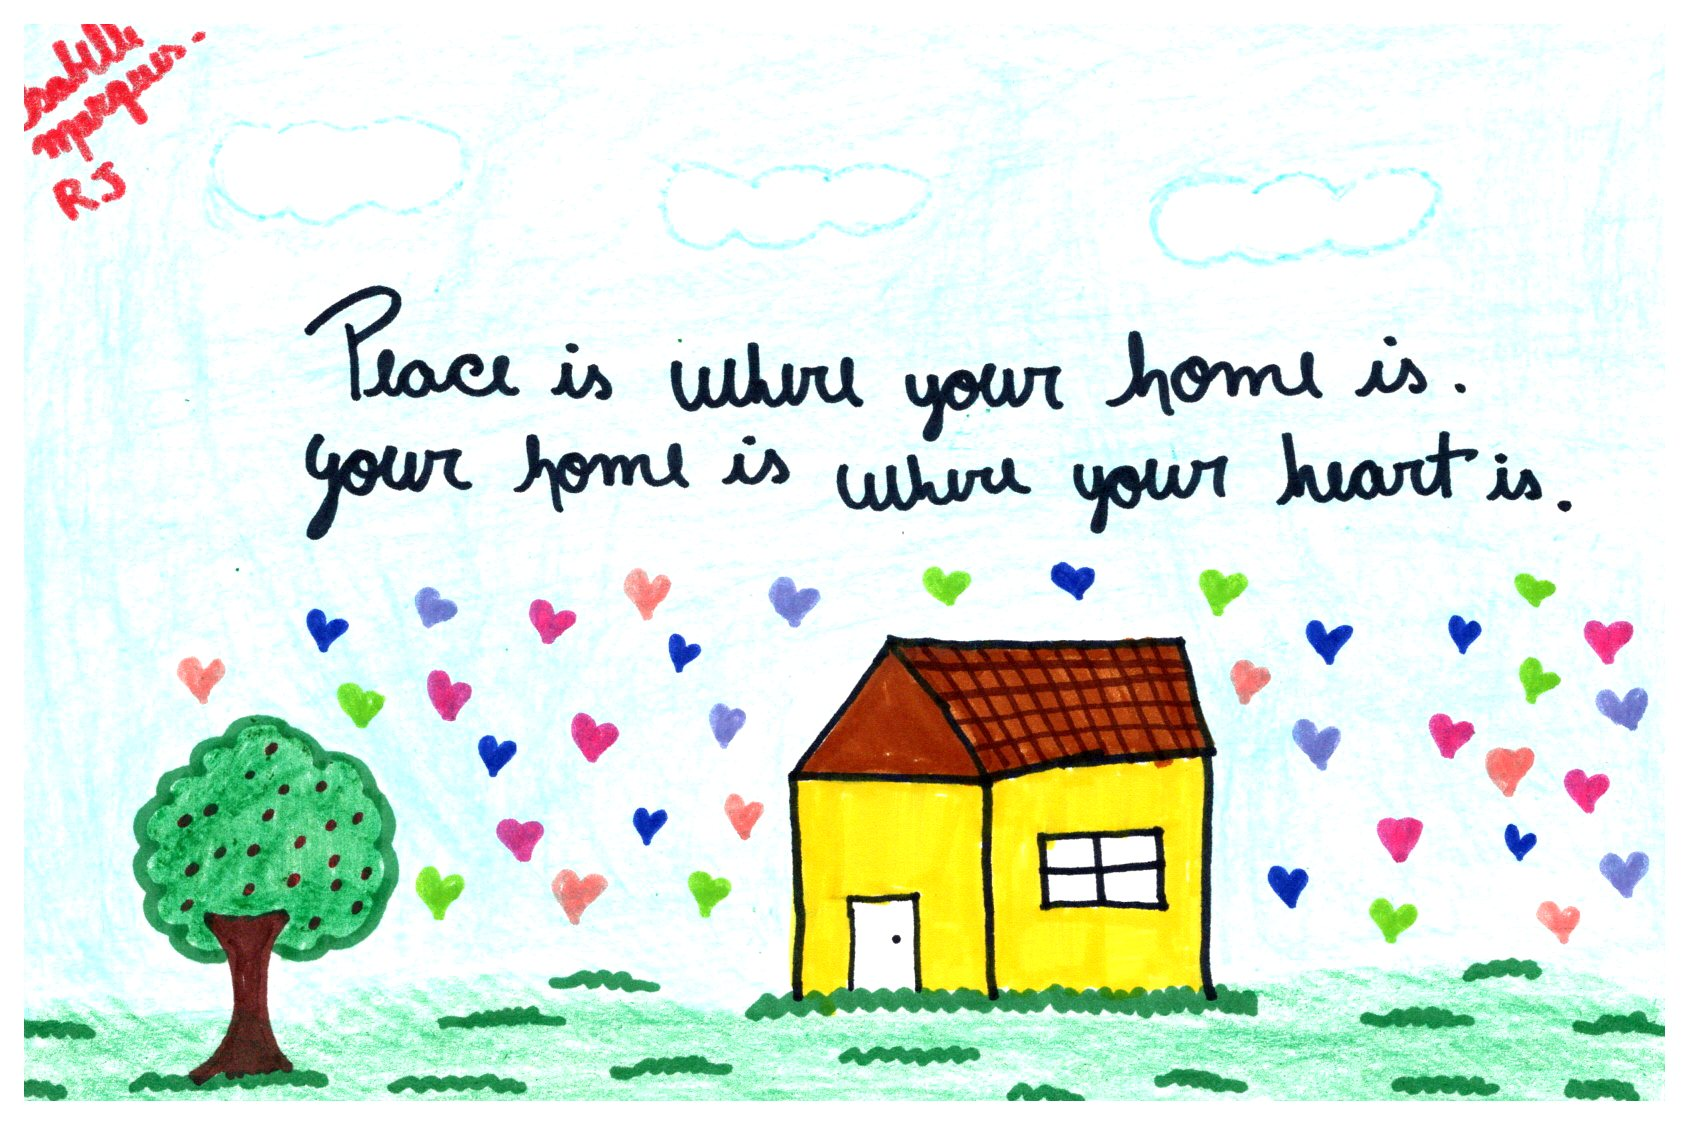 Marques.
RJ
Peace is where your home is.
your home is where your heart is.